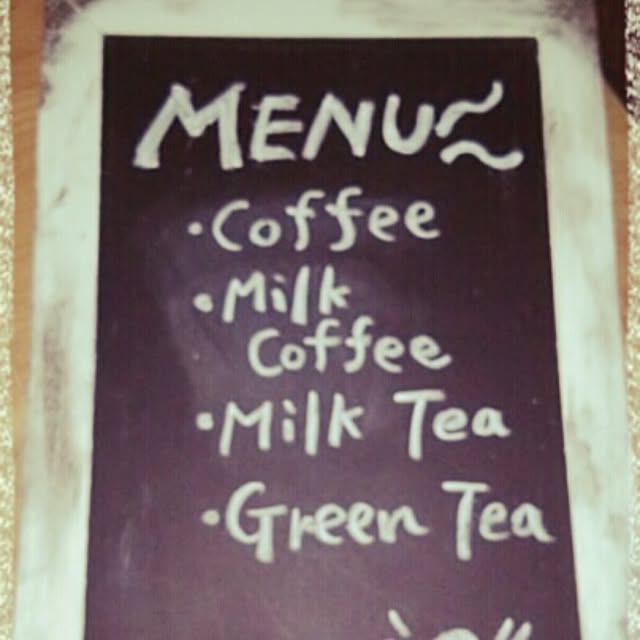 MENU~
·Coffee
·Milk
Coffee
·Milk Tea
·Green Tea